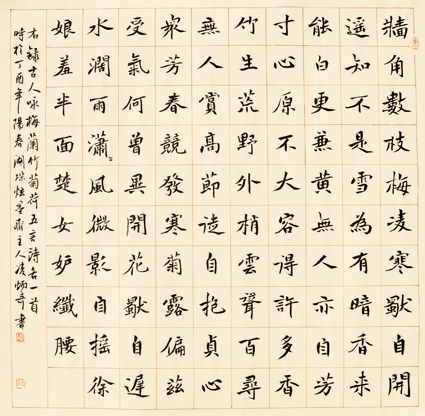 牆角數枝梅凌寒獨自開
遥知不是雪為有暗香来
能白更兼黄無人亦自芳
寸心原不大容得許多香
竹生荒野外梢雲聳百尋
無人賞高節徒自抱貞心
衆芳春競發寒菊露偏兹
受氣何曾異開花獨自遲
水闊雨瀟〻風微影自摇徐
娘羞半面楚女妒纖腰
右録古人咏梅蘭竹菊荷五言詩各一首
時於丁酉年陽春湖主人書